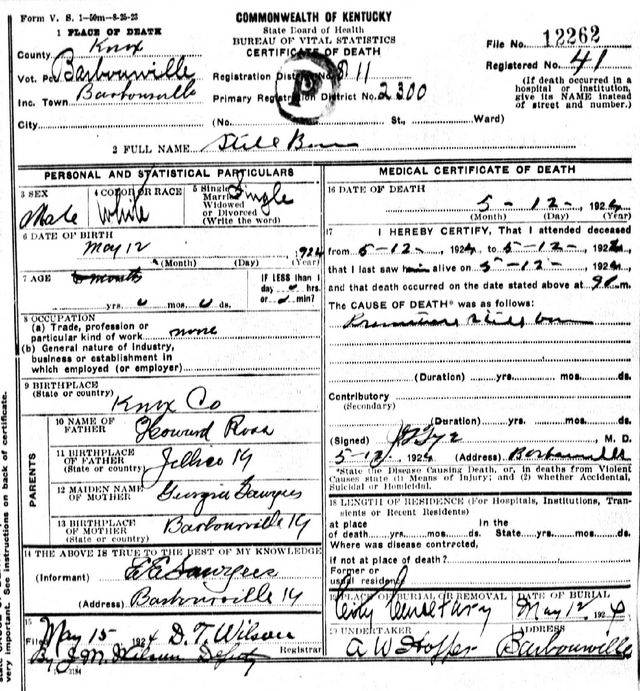 Form V. S. 1-50m-8-25-23
COMMONWEALTH OF KENTUCKY
State Board of Health
BUREAU OF VITAL STATISTICS
CERTIFICATE OF DEATH
File No. 12262
Registered No. 41
(If death occurred in a hospital or institution, give its NAME instead of street and number.)
1 PLACE OF DEATH
County Knox
Vot. Pct Barbourville
Inc. Town Barbourville
City
Registration District No. 811
Primary Registration District No. 2300
(No. St., Ward)
2 FULL NAME Still Born
PERSONAL AND STATISTICAL PARTICULARS
3 SEX
Male
4 COLOR OR RACE
White
5 Single
Married
Widowed
or Divorced
(Write the word)
Single
6 DATE OF BIRTH
May 12 1924
(Month) (Day) (Year)
7 AGE
yrs. 0 mos. 0 ds.
IF LESS than 1
day hrs.
or min?
8 OCCUPATION
(a) Trade, profession or
particular kind of work none
(b) General nature of industry,
business or establishment in
which employed (or employer)
9 BIRTHPLACE
(State or country)
Knox Co
PARENTS
10 NAME OF
FATHER
Howard Ross
11 BIRTHPLACE
OF FATHER
(State or country)
Jellico Ky
12 MAIDEN NAME
OF MOTHER
Georgia
13 BIRTHPLACE
OF MOTHER
(State or country)
Barbourville Ky
14 THE ABOVE IS TRUE TO THE BEST OF MY KNOWLEDGE
(Informant)
(Address) Barbourville Ky
15
Filed May 15 1924 D. T. Wilson
Registrar
By J. M. Wilson Deputy
MEDICAL CERTIFICATE OF DEATH
16 DATE OF DEATH
5-12-, 1924
(Month) (Day) (Year)
17 I HEREBY CERTIFY, That I attended deceased
from 5-12-, 1924, to 5-12-, 1924
that I last saw him alive on 5-12-, 1924
and that death occurred on the date stated above at 9 m.
The CAUSE OF DEATH* was as follows:
Premature Still born
(Duration) yrs. mos. ds.
Contributory
(Secondary)
(Duration) yrs. mos. ds.
(Signed) M. D.
5-12, 1924 (Address) Barbourville
*State the Disease Causing Death, or, in deaths from Violent
Causes state (1) Means of Injury; and (2) whether Accidental,
Suicidal or Homicidal.
18 LENGTH OF RESIDENCE (For Hospitals, Institutions, Tran-
sients or Recent Residents)
at place In the
of death yrs. mos. ds. State yrs. mos. ds.
Where was disease contrcted,
if not at place of death?
Former or
usual residence
19 PLACE OF BURIAL OR REMOVAL
City Cemetary
DATE OF BURIAL
May 12 1924
20 UNDERTAKER
A W Hopper
ADDRESS
Barbourville
very important. See instructions on back of certificate.